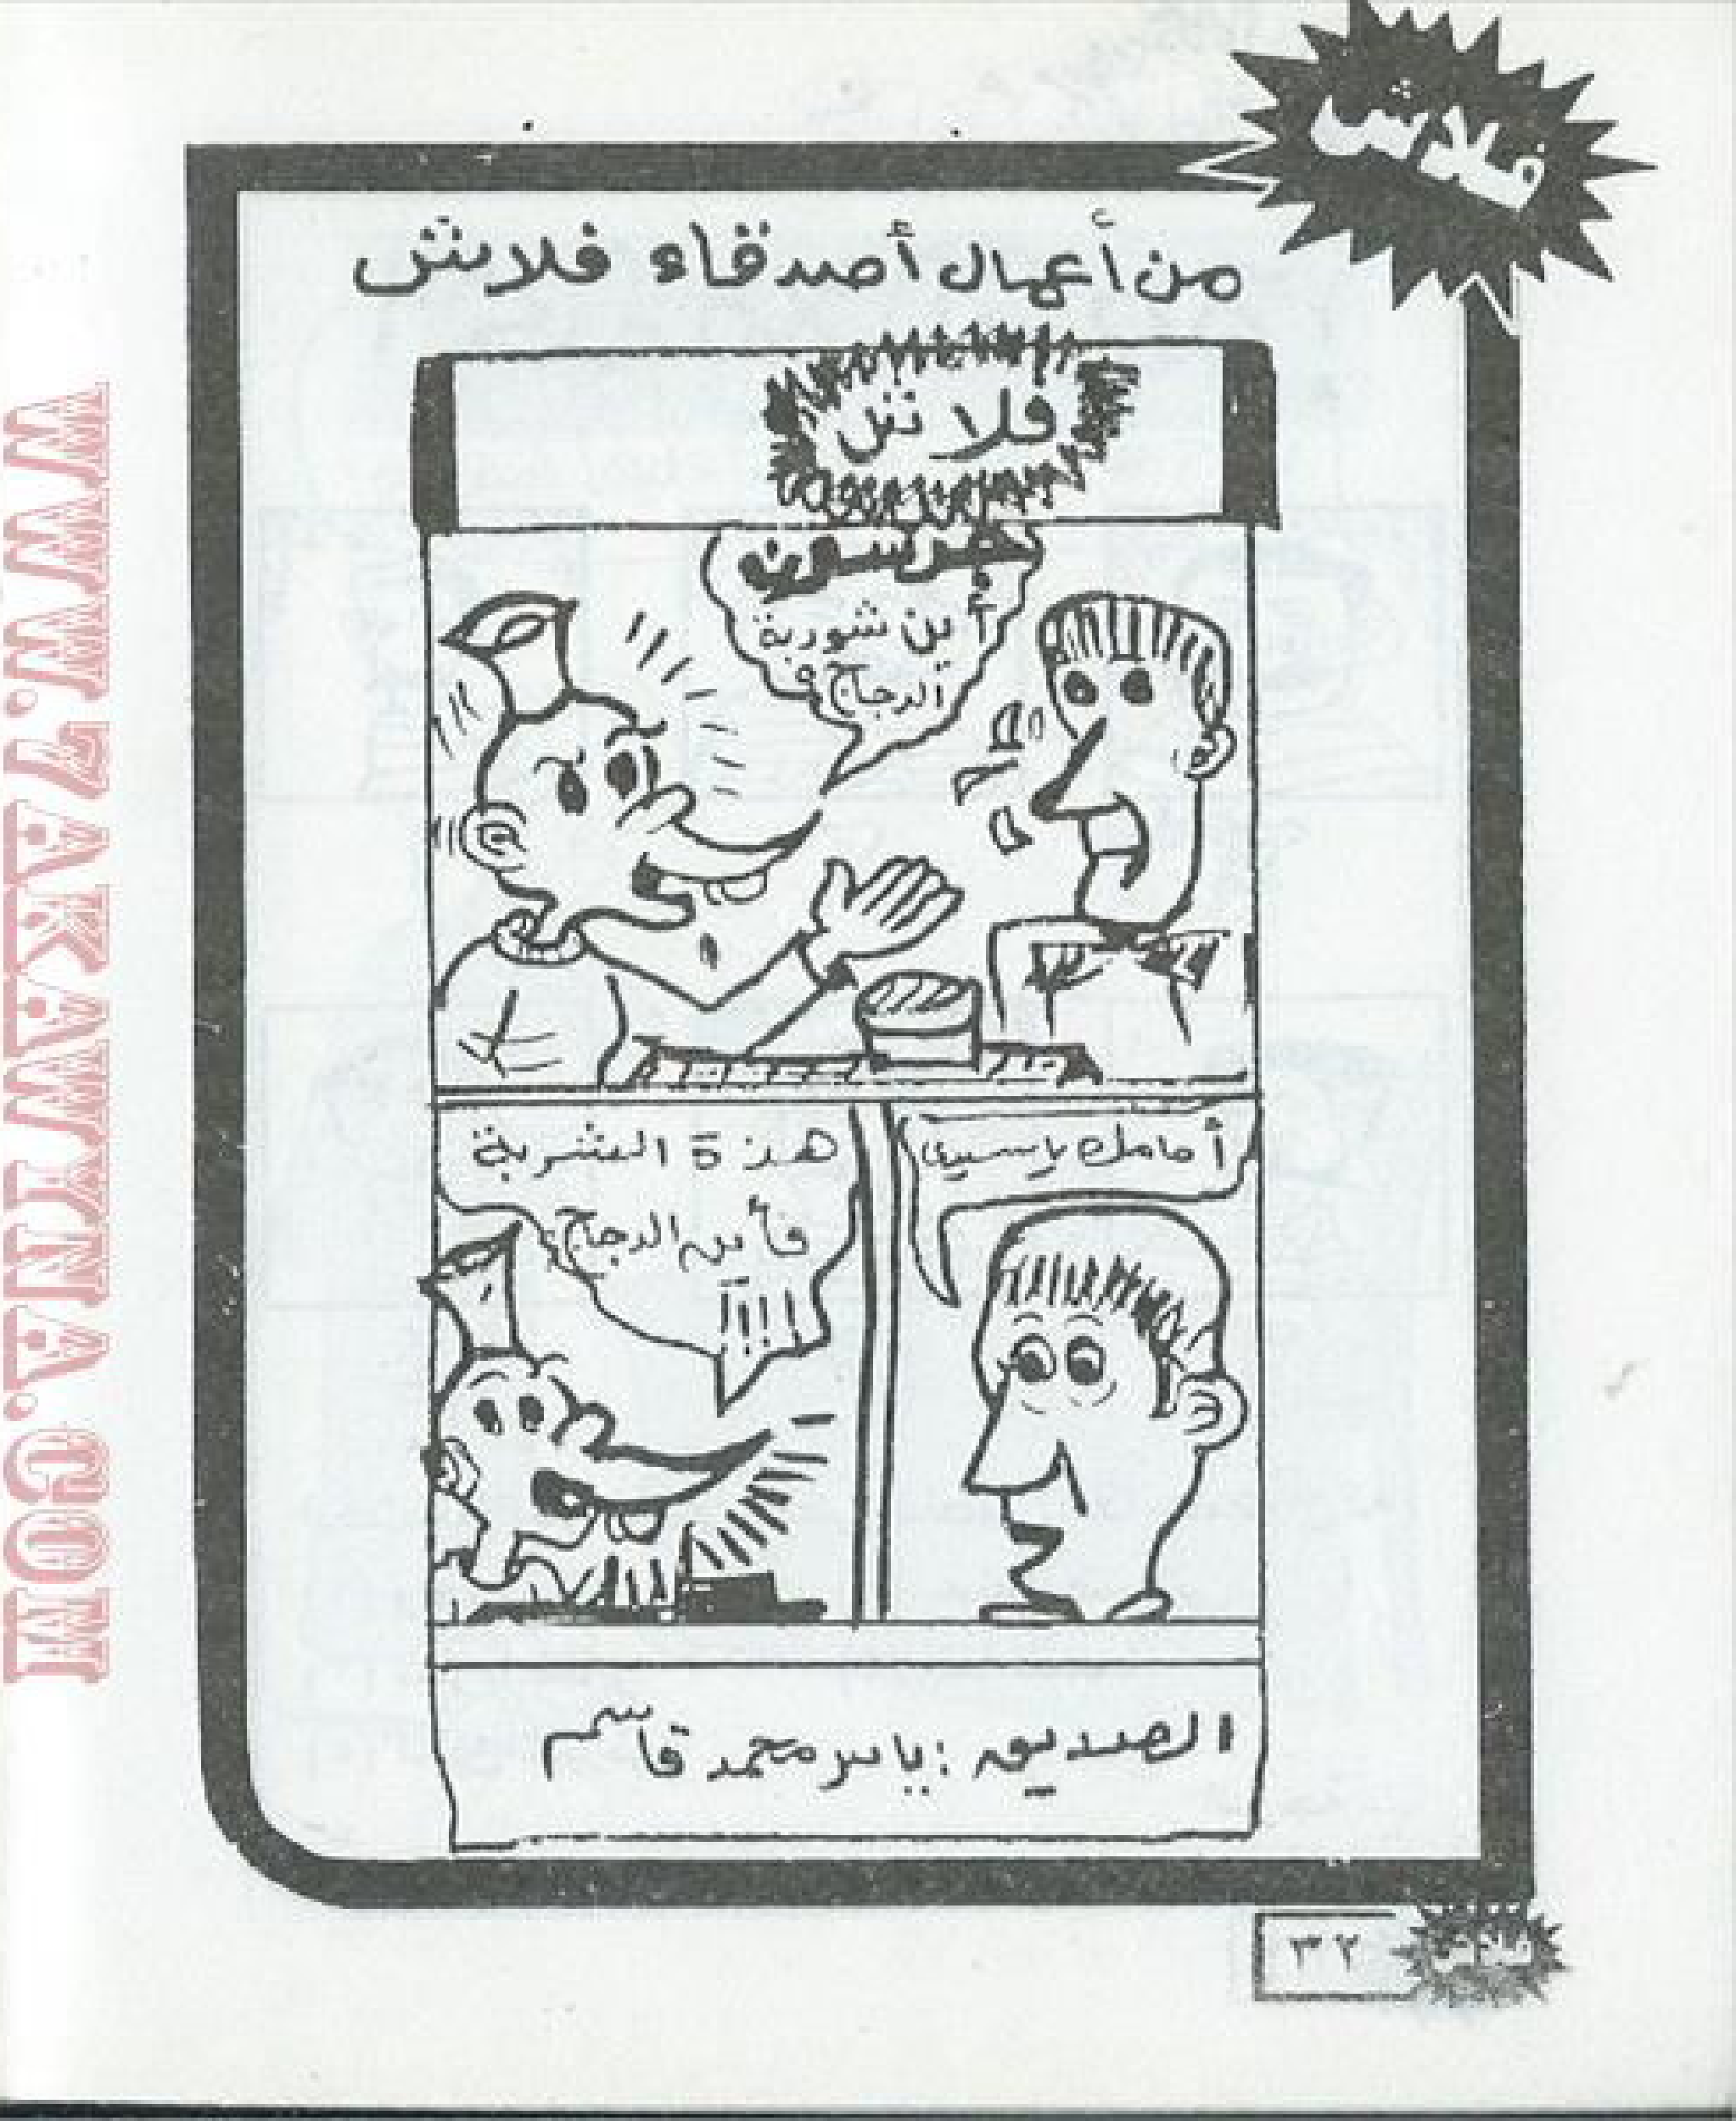 فلاش
من أعمال أصدقاء فلاش
فلاش
جرسون
أين شوربة
الدجاج؟
أمامك ياسيدى
هذة الشربة
فأين الدجاج
!!!!
الصديق : ياسر محمد قاسم
٣٢
فلاش
WWW.7AKAWTNA.COM